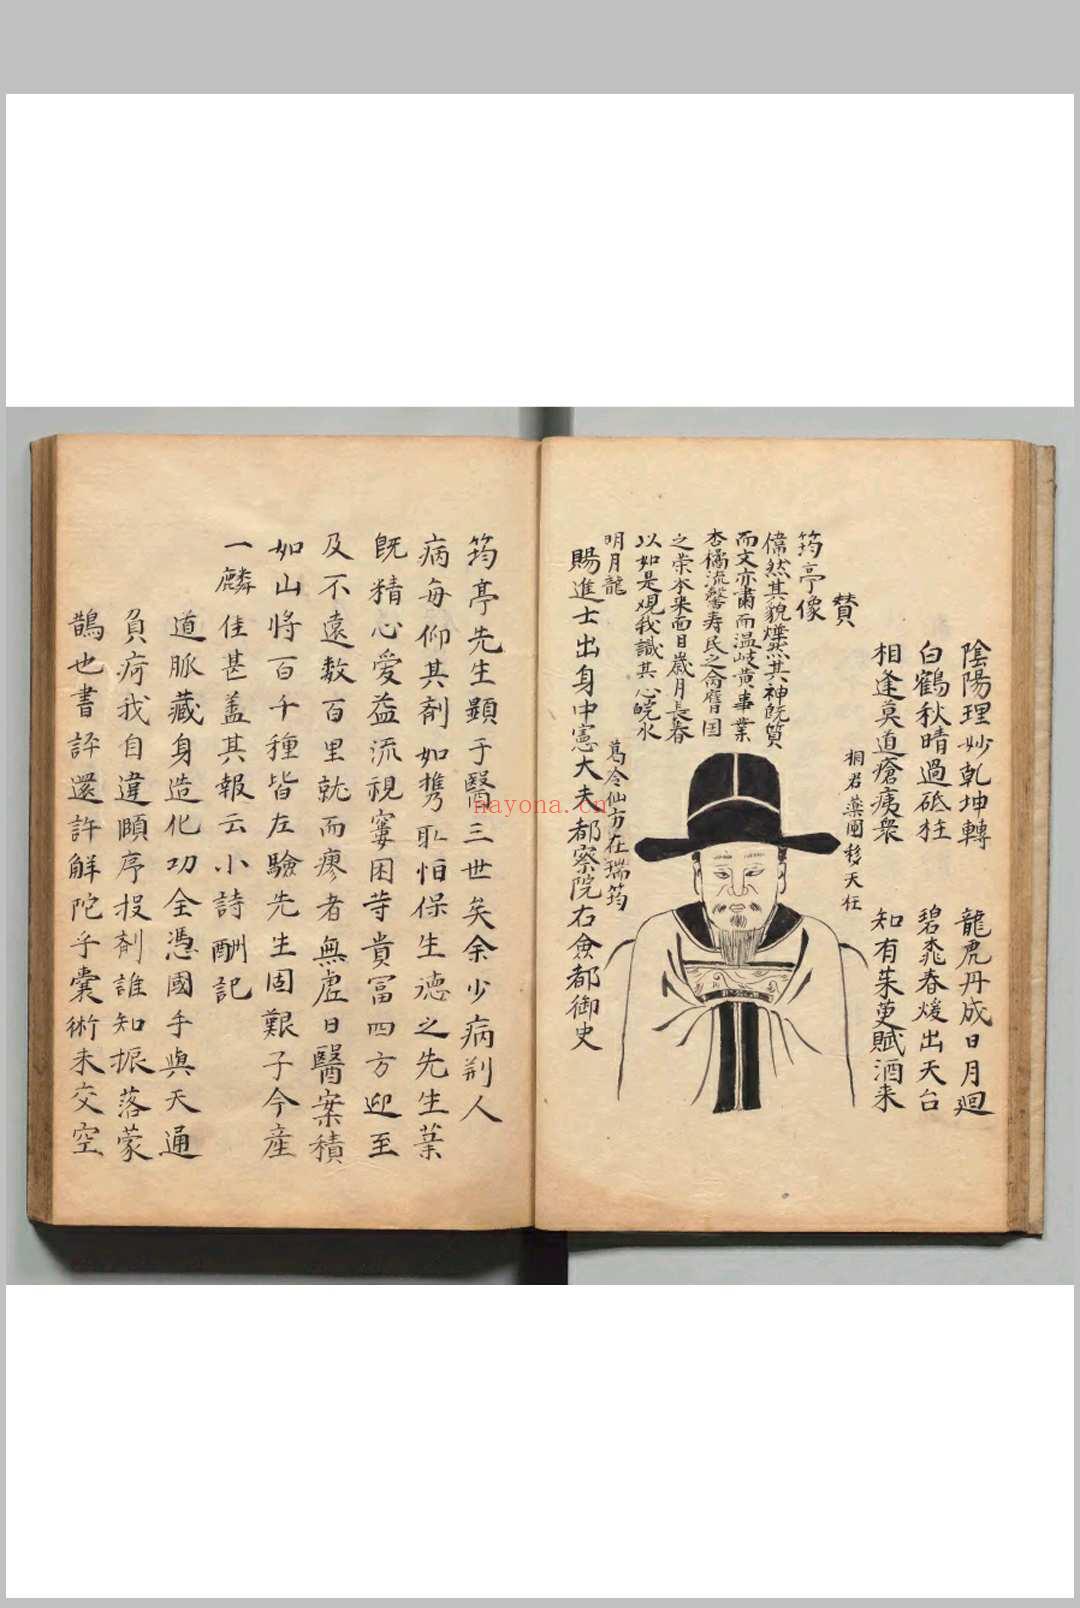 陰陽理妙乾坤轉 龍虎丹成日月廻
白鶴秋晴過砥柱 碧桃春煖出天台
相逢莫道瘡痍衆 知有茱萸賦酒来
桐君藥國移天任
贊
筠亭像
偉然其貌燁然其神既質
而文亦肅而温岐黄事業
杏橘流馨寿民之侖膺国
之荣本来面目歳月長春
以如是观我識其心皖水
明月龍
葛令仙方在瑞筠
賜進士出身中憲大夫都察院右僉都御史
筠亭先生顯于醫三世矣余少病荊人
病每仰其剤如携耴怕保生德之先生葉
既精心爱益流視寠困苛貴富四方迎至
及不遠数百里就而瘳者無虗日醫案積
如山将百千種皆左驗先生固艱子今産
一麟佳甚盖其報云小詩酬記
道脈藏身造化功全憑國手與天通
負疴我自違頤序投劑誰知振落蒙
鵲也書評還許觧陀乎嚢術未交空
nayona.cn